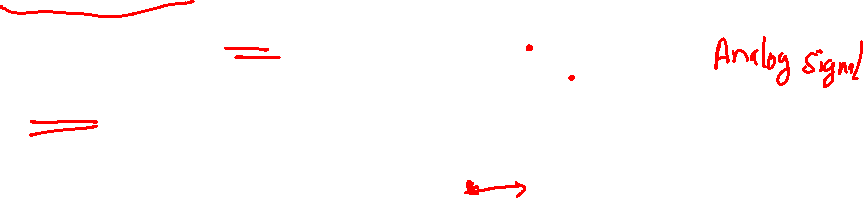 Analog Signal